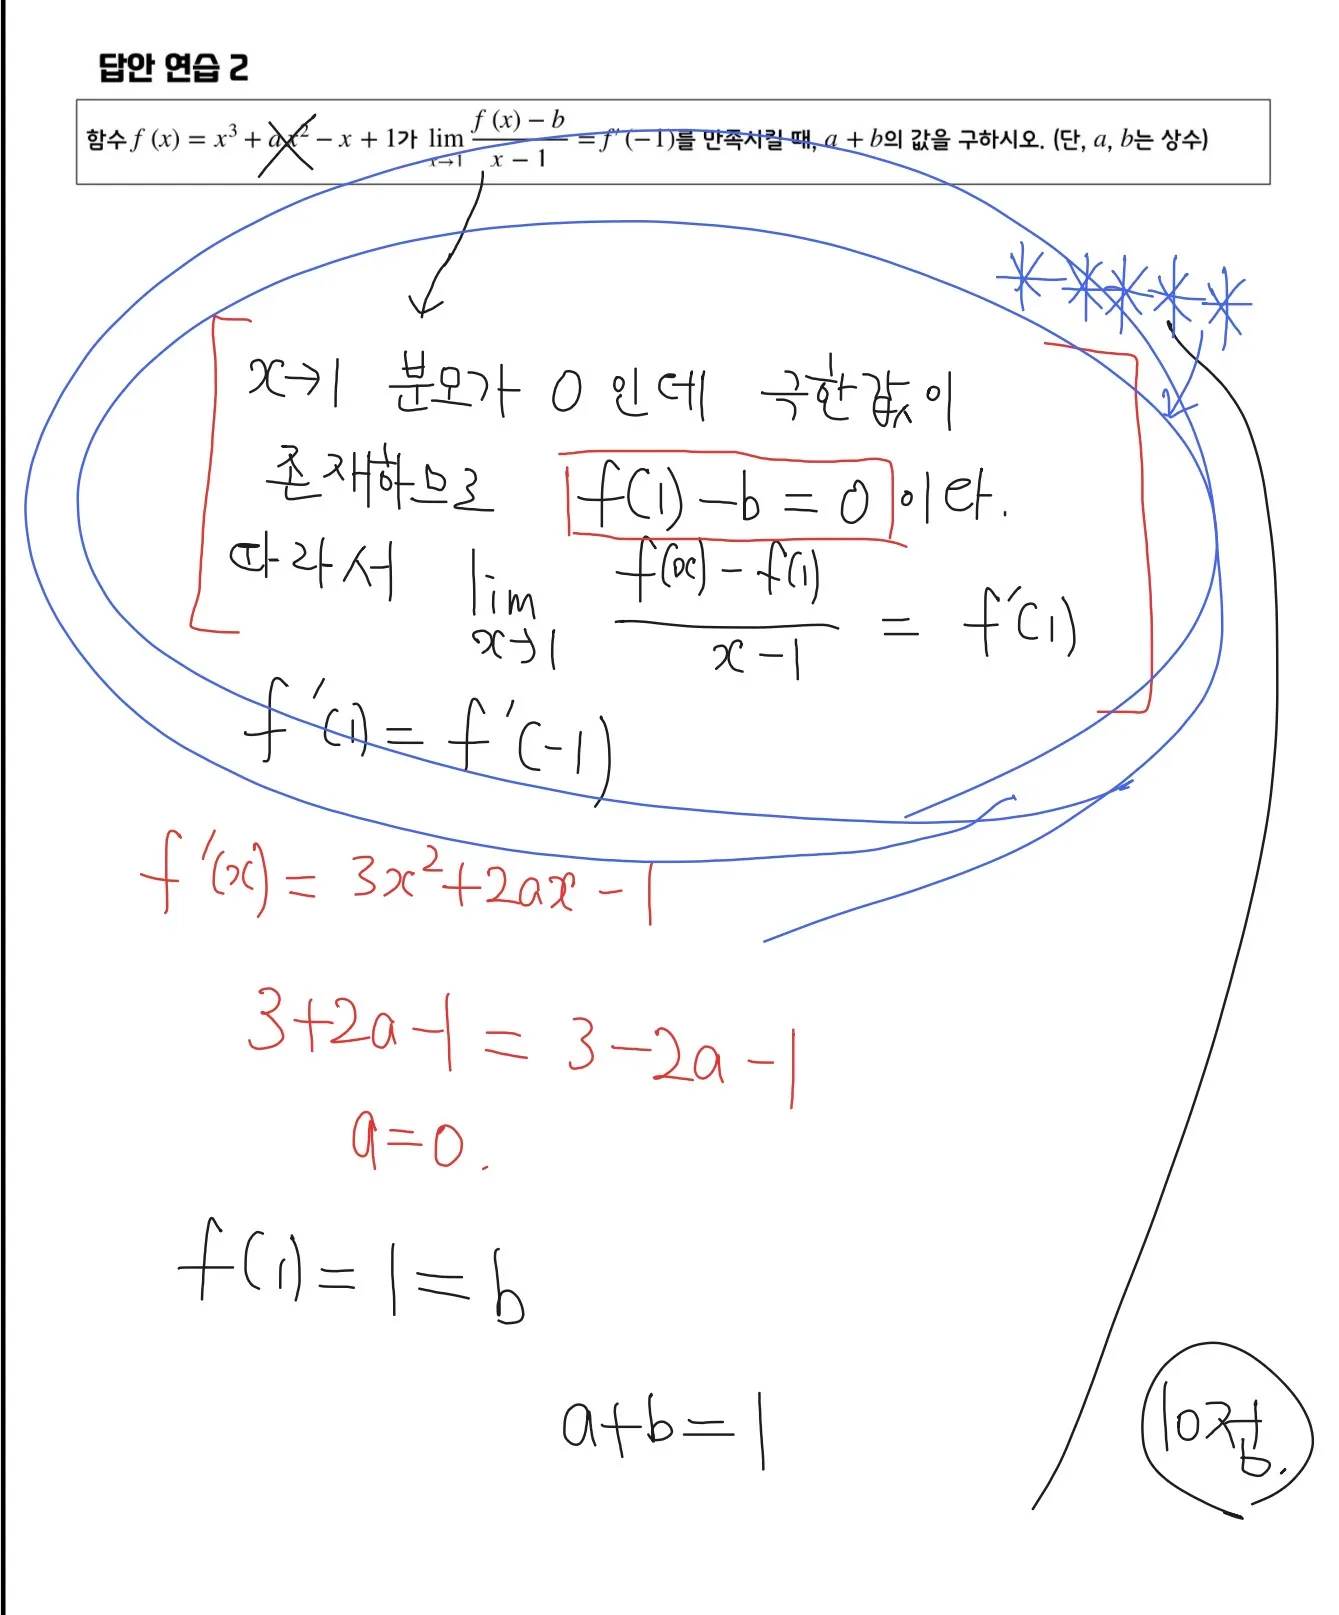 답안 연습 2
함수 f (x) = x³ + ax² − x + 1가 lim x→1 f (x) − b / x − 1 = f′ (−1)를 만족시킬 때, a + b의 값을 구하시오. (단, a, b는 상수)
x→1 분모가 0 인데 극한값이
존재하므로 f(1) − b = 0 이다.
따라서 lim x→1 f(x) − f(1) / x − 1 = f′(1)
f′(1) = f′(−1)
f′(x) = 3x² + 2ax − 1
3 + 2a − 1 = 3 − 2a − 1
a = 0.
f(1) = 1 = b
a + b = 1
10점.